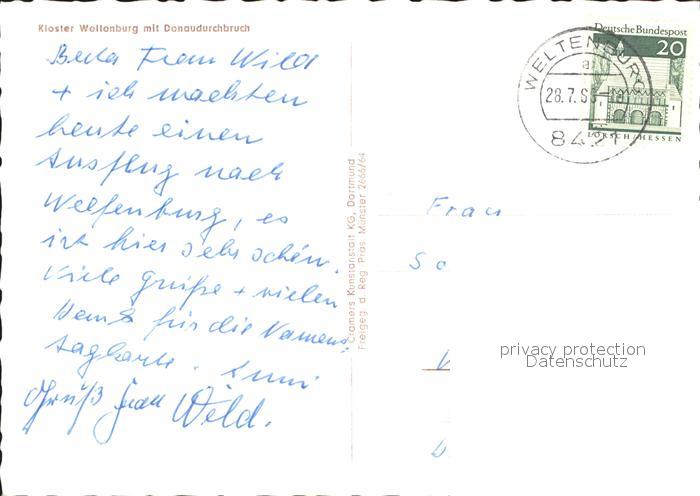 Kloster Weltenburg mit Donaudurchbruch
Frau Wild
+ ich machten
heute einen
Ausflug nach
Weltenburg, es
ist hier sehr schön.
Viele Grüße + vielen
Dank für die Namens-
tagkarte.
Gruß Frau Wild.
Cramers Kunstanstalt KG, Dortmund
Freigeg. d. Reg. Präs. Münster 2666/64
WELTENBURG
a
28.7.6
8421
Deutsche Bundespost
20
LORSCH/HESSEN
Frau
privacy protection
Datenschutz